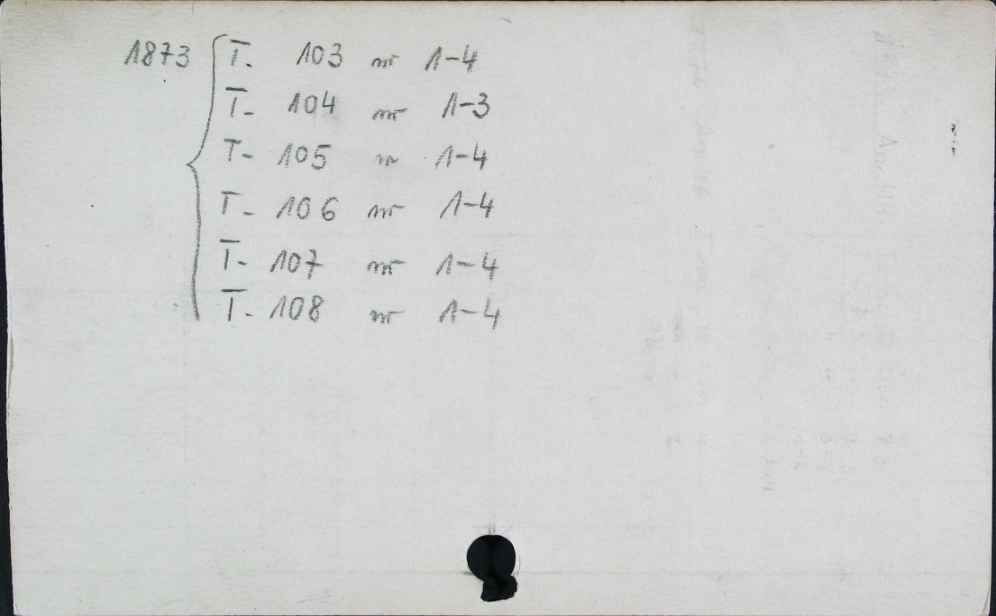 1873 T. 103 nr 1-4
T- 104 nr 1-3
T- 105 nr 1-4
T- 106 nr 1-4
T- 107 nr 1-4
T. 108 nr 1-4